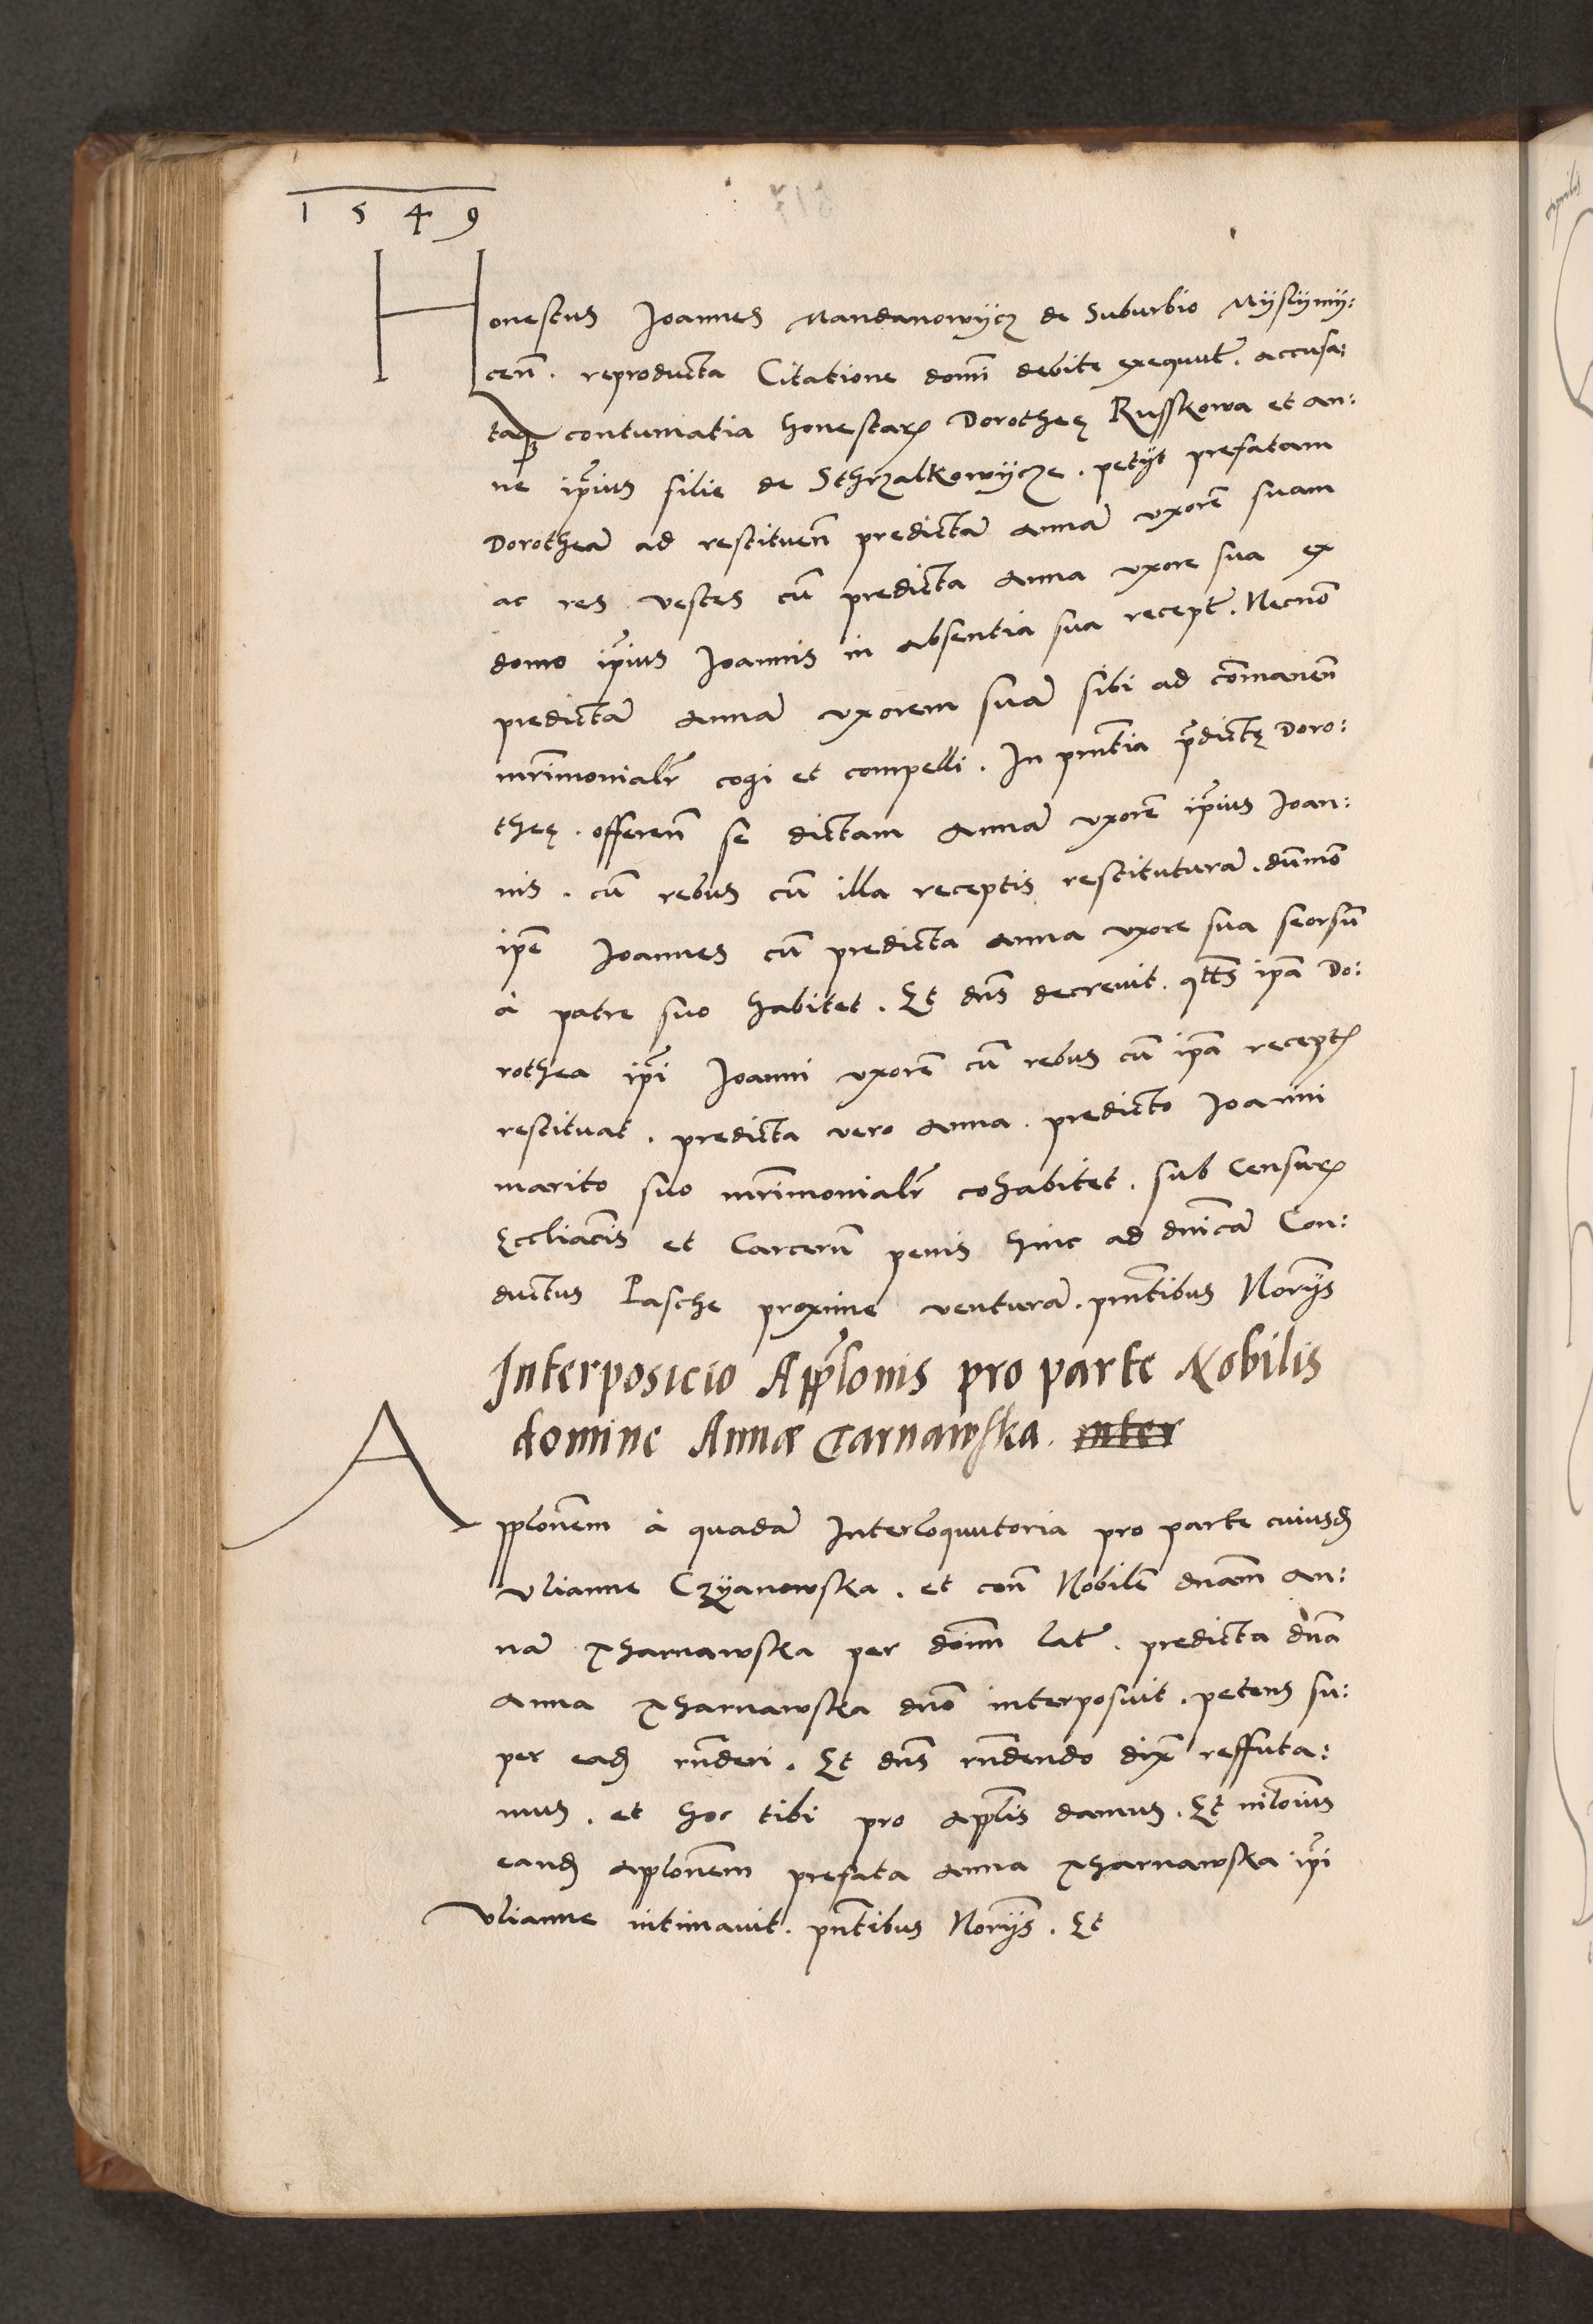 1549
Honestus Joannes Mandanowÿcz de Suburbio Mÿslÿmÿ:
ceñ. reproducta Citatione domī debite exequut̄. accusa:
taq₃ contumatia honestaꝝ Dorotheę Russkowa et An:
ne ip̄ius filie de Sthrzalkowÿcze. petÿt prefatam
Dorotheā ad restitueñ predictā Annā uxorē suam
ac res vestes cū predicta Anna uxore sua ex
domo ip̄ius Joannis in absentia sua recept̄. Necnō
predictā Annā uxorem suā sibi ad cōmaneñ
mr̄imonialr̄ cogi et compelli. In pn̄tia p̄dictę Doro:
theę. offereñ se dictam Annā uxorē ip̄ius Joan:
nis. cū rebus cū illa receptis restituturā. dūmō
ip̄e Joannes cū predicta Anna uxore sua seorsū
à patre suo habitet. Et dn̄s decrevit. qt̄s ip̄a Do:
rothea ip̄i Joanni uxorē cū rebus cū ip̄a receptꝭ
restituat. predicta vero Anna. predicto Joanni
marito suo mr̄imonialr̄ cohabitet. sub Censurꝭ
Eccliācis et Carcerū penis hinc ad dn̄icā Con:
ductus Pasche proxime venturā. pn̄tibus Nor̄ÿs
Interposicio App̄lonis pro parte Nobilis
domine Annæ Tarnawska. inter
App̄lonem à quadā Interloquutoria pro parte cuiusd̄
Ulianne Czÿanowska. et con̄ Nobilē dn̄am An:
nā Tharnawska per dōm̄ lat̄. predicta dn̄a
Anna Tharnawska dn̄o interposuit. petens su:
per ead̄ rn̄deri. Et dn̄s rn̄dendo dix̄ reffuta:
mus. et hoc tibi pro Ap̄plis damus. Et nilōius
eand̄ App̄lonem prefata Anna Tharnawska ip̄i
Ulianne intimavit. pn̄tibus Nor̄ÿs. Et